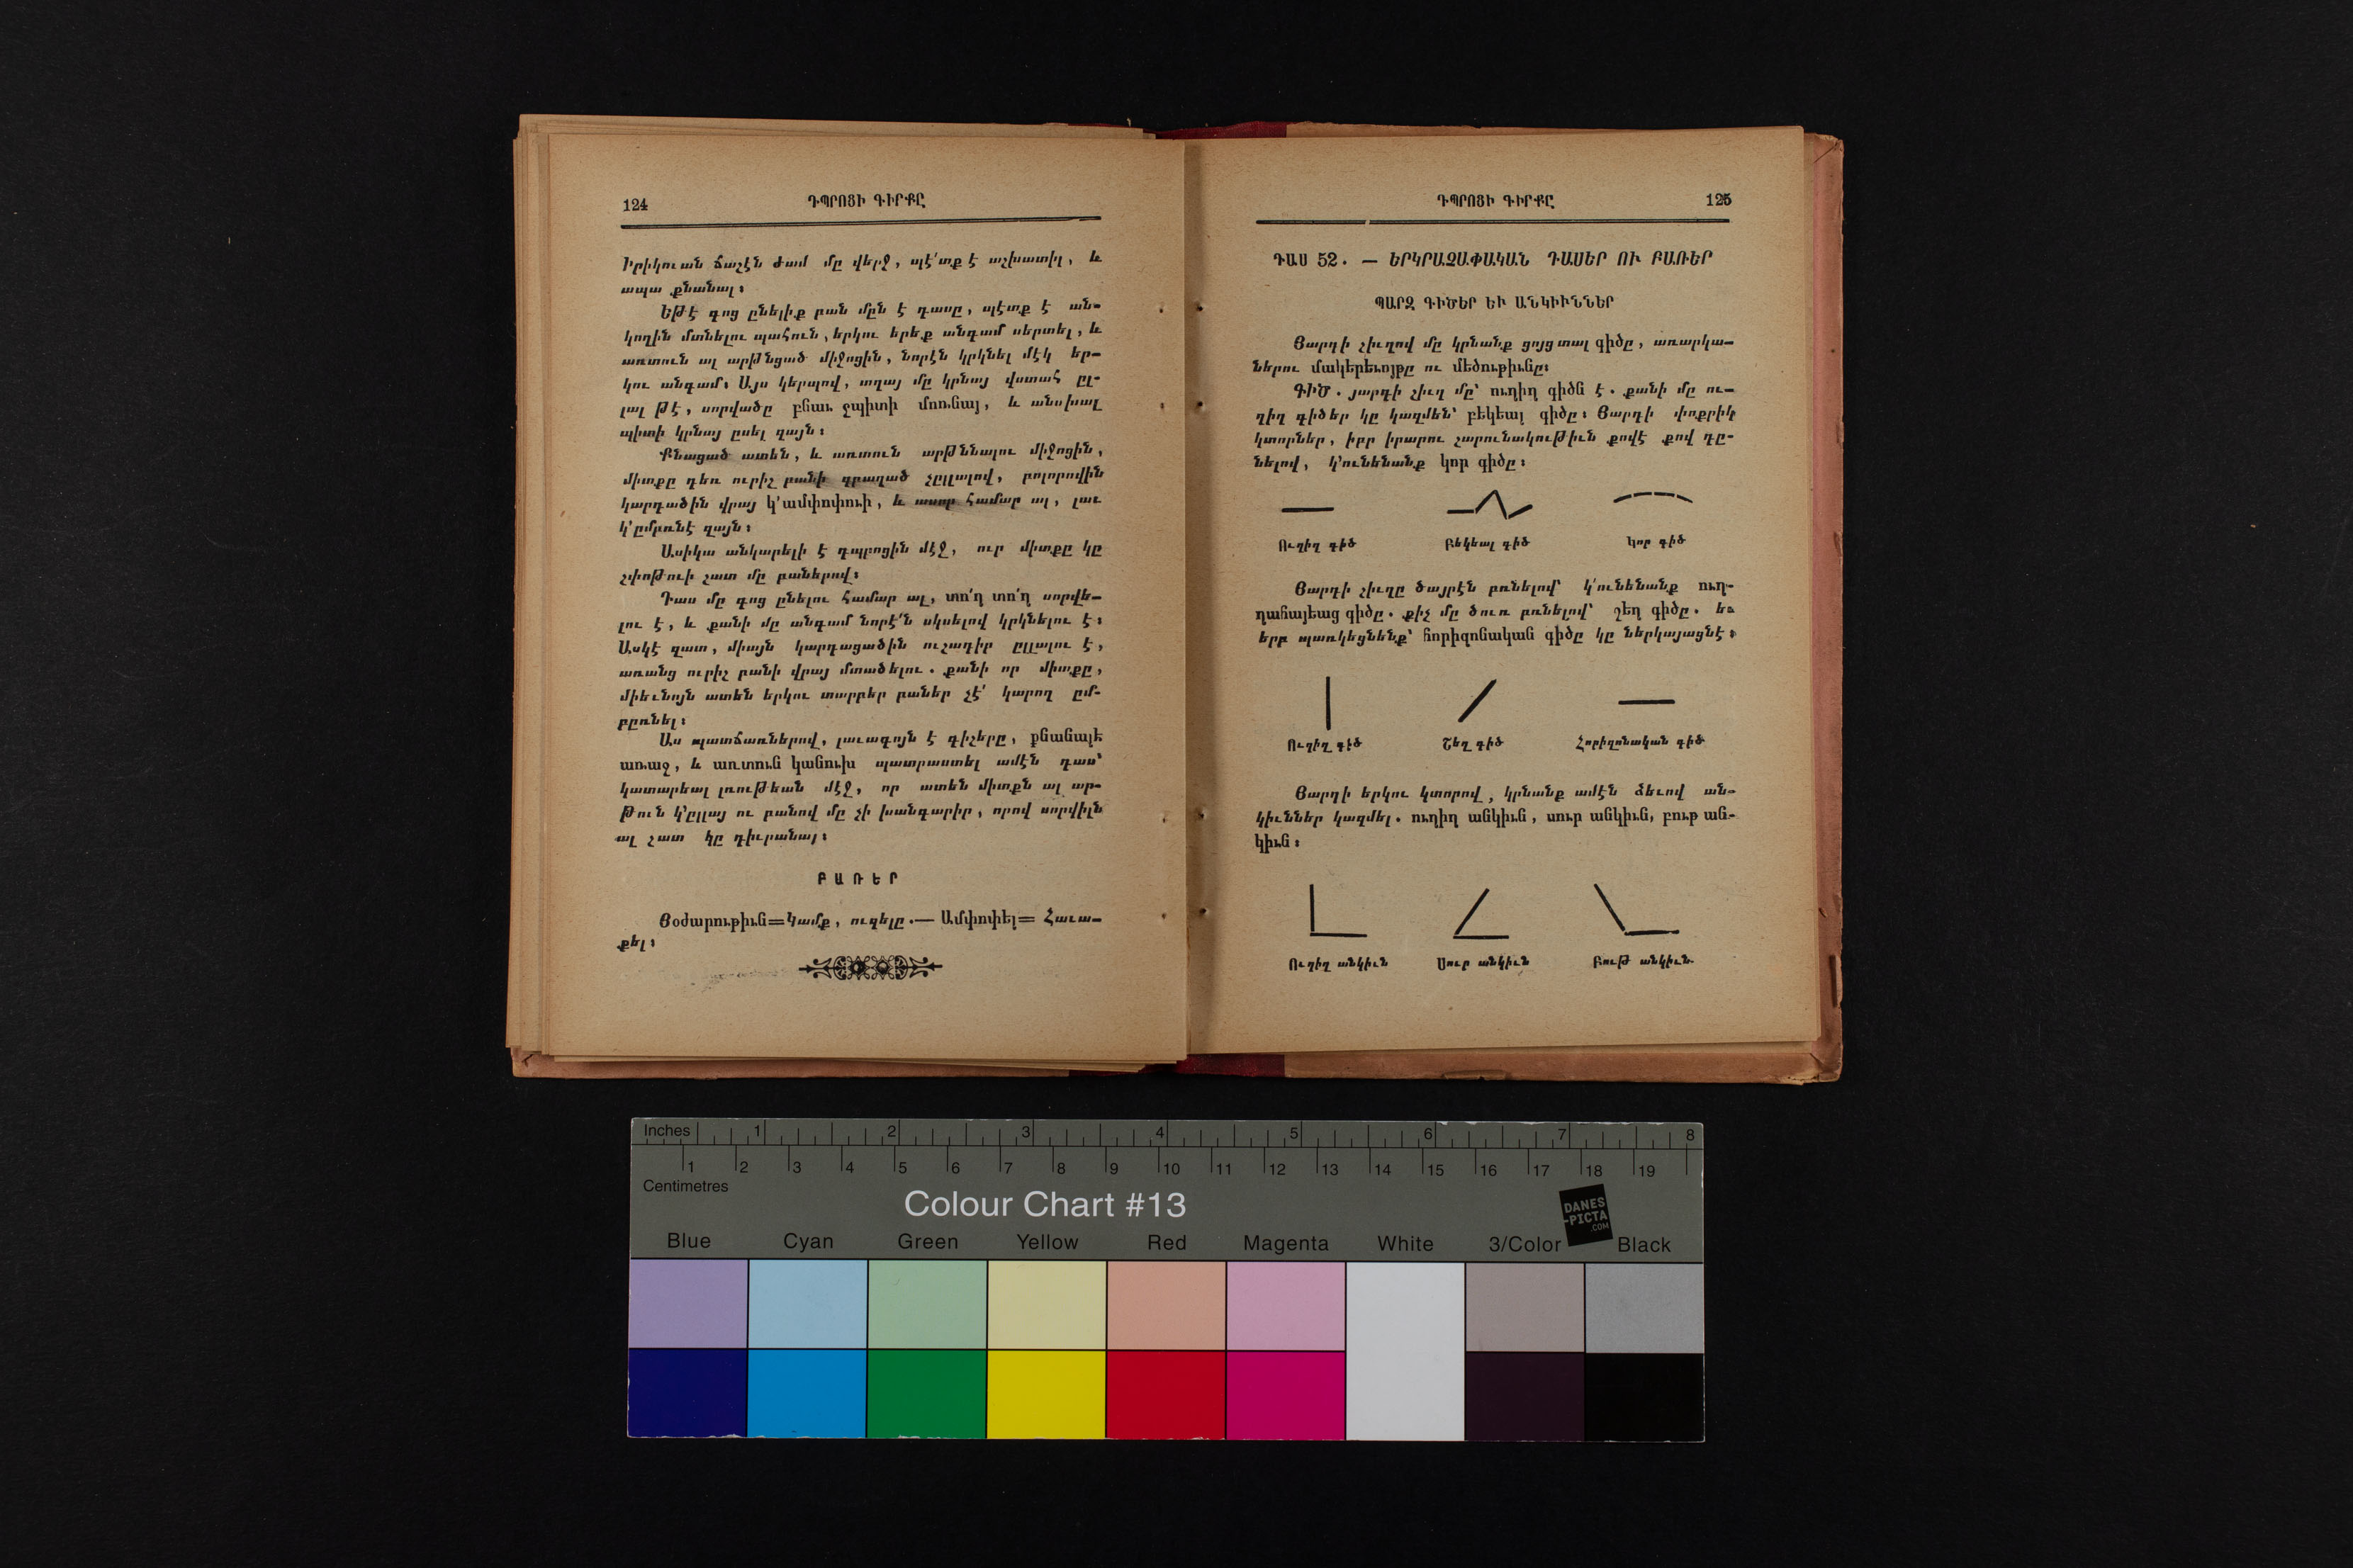 124
ԴՊՐՈՑԻ ԳԻՐՔԸ
Իրիկուան ճաշէն ժամ մը վերջ, պէ՛տք է աշխատիլ, և
ապա քնանալ։
Եթէ գոց ընելիք բան մըն է դասը, պէտք է ան-
կողին մտնելու պահուն, երկու երեք անգամ սերտել, և
առտուն ալ արթնցած միջոցին, նորէն կրկնել մէկ եր-
կու անգամ։ Այս կերպով, տղայ մը կրնայ վստահ ըլ-
լալ թէ, սորվածը բնաւ չպիտի մոռնայ, և անսխալ
պիտի կրնայ ըսել զայն։
Քնացած ատեն, և առտուն արթննալու միջոցին,
միտքը դեռ ուրիշ բանի զբաղած չըլլալով, բոլորովին
կարդածին վրայ կ՚ամփոփուի, և ասոր համար ալ, լաւ
կ՚ըմբռնէ զայն։
Ասիկա անկարելի է դպրոցին մէջ, ուր միտքը կը
շփոթուի շատ մը բաներով։
Դաս մը գոց ընելու համար ալ, տո՛ղ տո՛ղ սորվե-
լու է, և քանի մը անգամ նորէ՛ն սկսելով կրկնելու է։
Ասկէ զատ, միայն կարդացածին ուշադիր ըլլալու է,
առանց ուրիշ բանի վրայ մտածելու. քանի որ միտքը,
միեւնոյն ատեն երկու տարբեր բաներ չէ՛ կարող ըմ-
բըռնել։
Աս պատճառներով, լաւագոյն է գիշերը, քնանալէ
առաջ, և առտուն կանուխ պատրաստել ամէն դաս՝
կատարեալ լռութեան մէջ, որ ատեն միտքն ալ ար-
թուն կ՚ըլլայ ու բանով մը չի խանգարիր, որով սորվիլն
ալ շատ կը դիւրանայ։
ԲԱՌԵՐ
Յօժարութիւն=Կամք, ուզելը.— Ամփոփել= Հաւա-
քել։
ԴՊՐՈՑԻ ԳԻՐՔԸ
125
ԴԱՍ 52. — ԵՐԿՐԱՉԱՓԱԿԱՆ ԴԱՍԵՐ ՈՒ ԲԱՌԵՐ
ՊԱՐԶ ԳԻԾԵՐ ԵՒ ԱՆԿԻՒՆՆԵՐ
Յարդի շիւղով մը կրնանք ցոյց տալ գիծը, առարկա-
ներու մակերեւոյթը ու մեծութիւնը։
ԳԻԾ. յարդի շիւղ մը՝ ուղիղ գիծն է. քանի մը ու-
ղիղ գիծեր կը կազմեն՝ բեկեալ գիծը։ Յարդի փոքրիկ
կտորներ, իբր իրարու շարունակութիւն քովէ քով դը-
նելով, կ՚ունենանք կոր գիծը։
Ուղիղ գիծ
Բեկեալ գիծ
Կոր գիծ
Յարդի շիւղը ծայրէն բռնելով՝ կ՚ունենանք ուղ-
ղահայեաց գիծը. քիչ մը ծուռ բռնելով՝ շեղ գիծը. եւ
երբ պառկեցնենք՝ հորիզոնական գիծը կը ներկայացնէ։
Ուղիղ գիծ
Շեղ գիծ
Հորիզոնական գիծ
Յարդի երկու կտորով, կրնանք ամէն ձեւով ան-
կիւններ կազմել. ուղիղ անկիւն, սուր անկիւն, բութ ան-
կիւն։
Ուղիղ անկիւն
Սուր անկիւն
Բութ անկիւն
Inches 1 2 3 4 5 6 7 8
1 2 3 4 5 6 7 8 9 10 11 12 13 14 15 16 17 18 19
Centimetres
Colour Chart #13
DANES
-PICTA
.COM
Blue Cyan Green Yellow Red Magenta White 3/Color Black